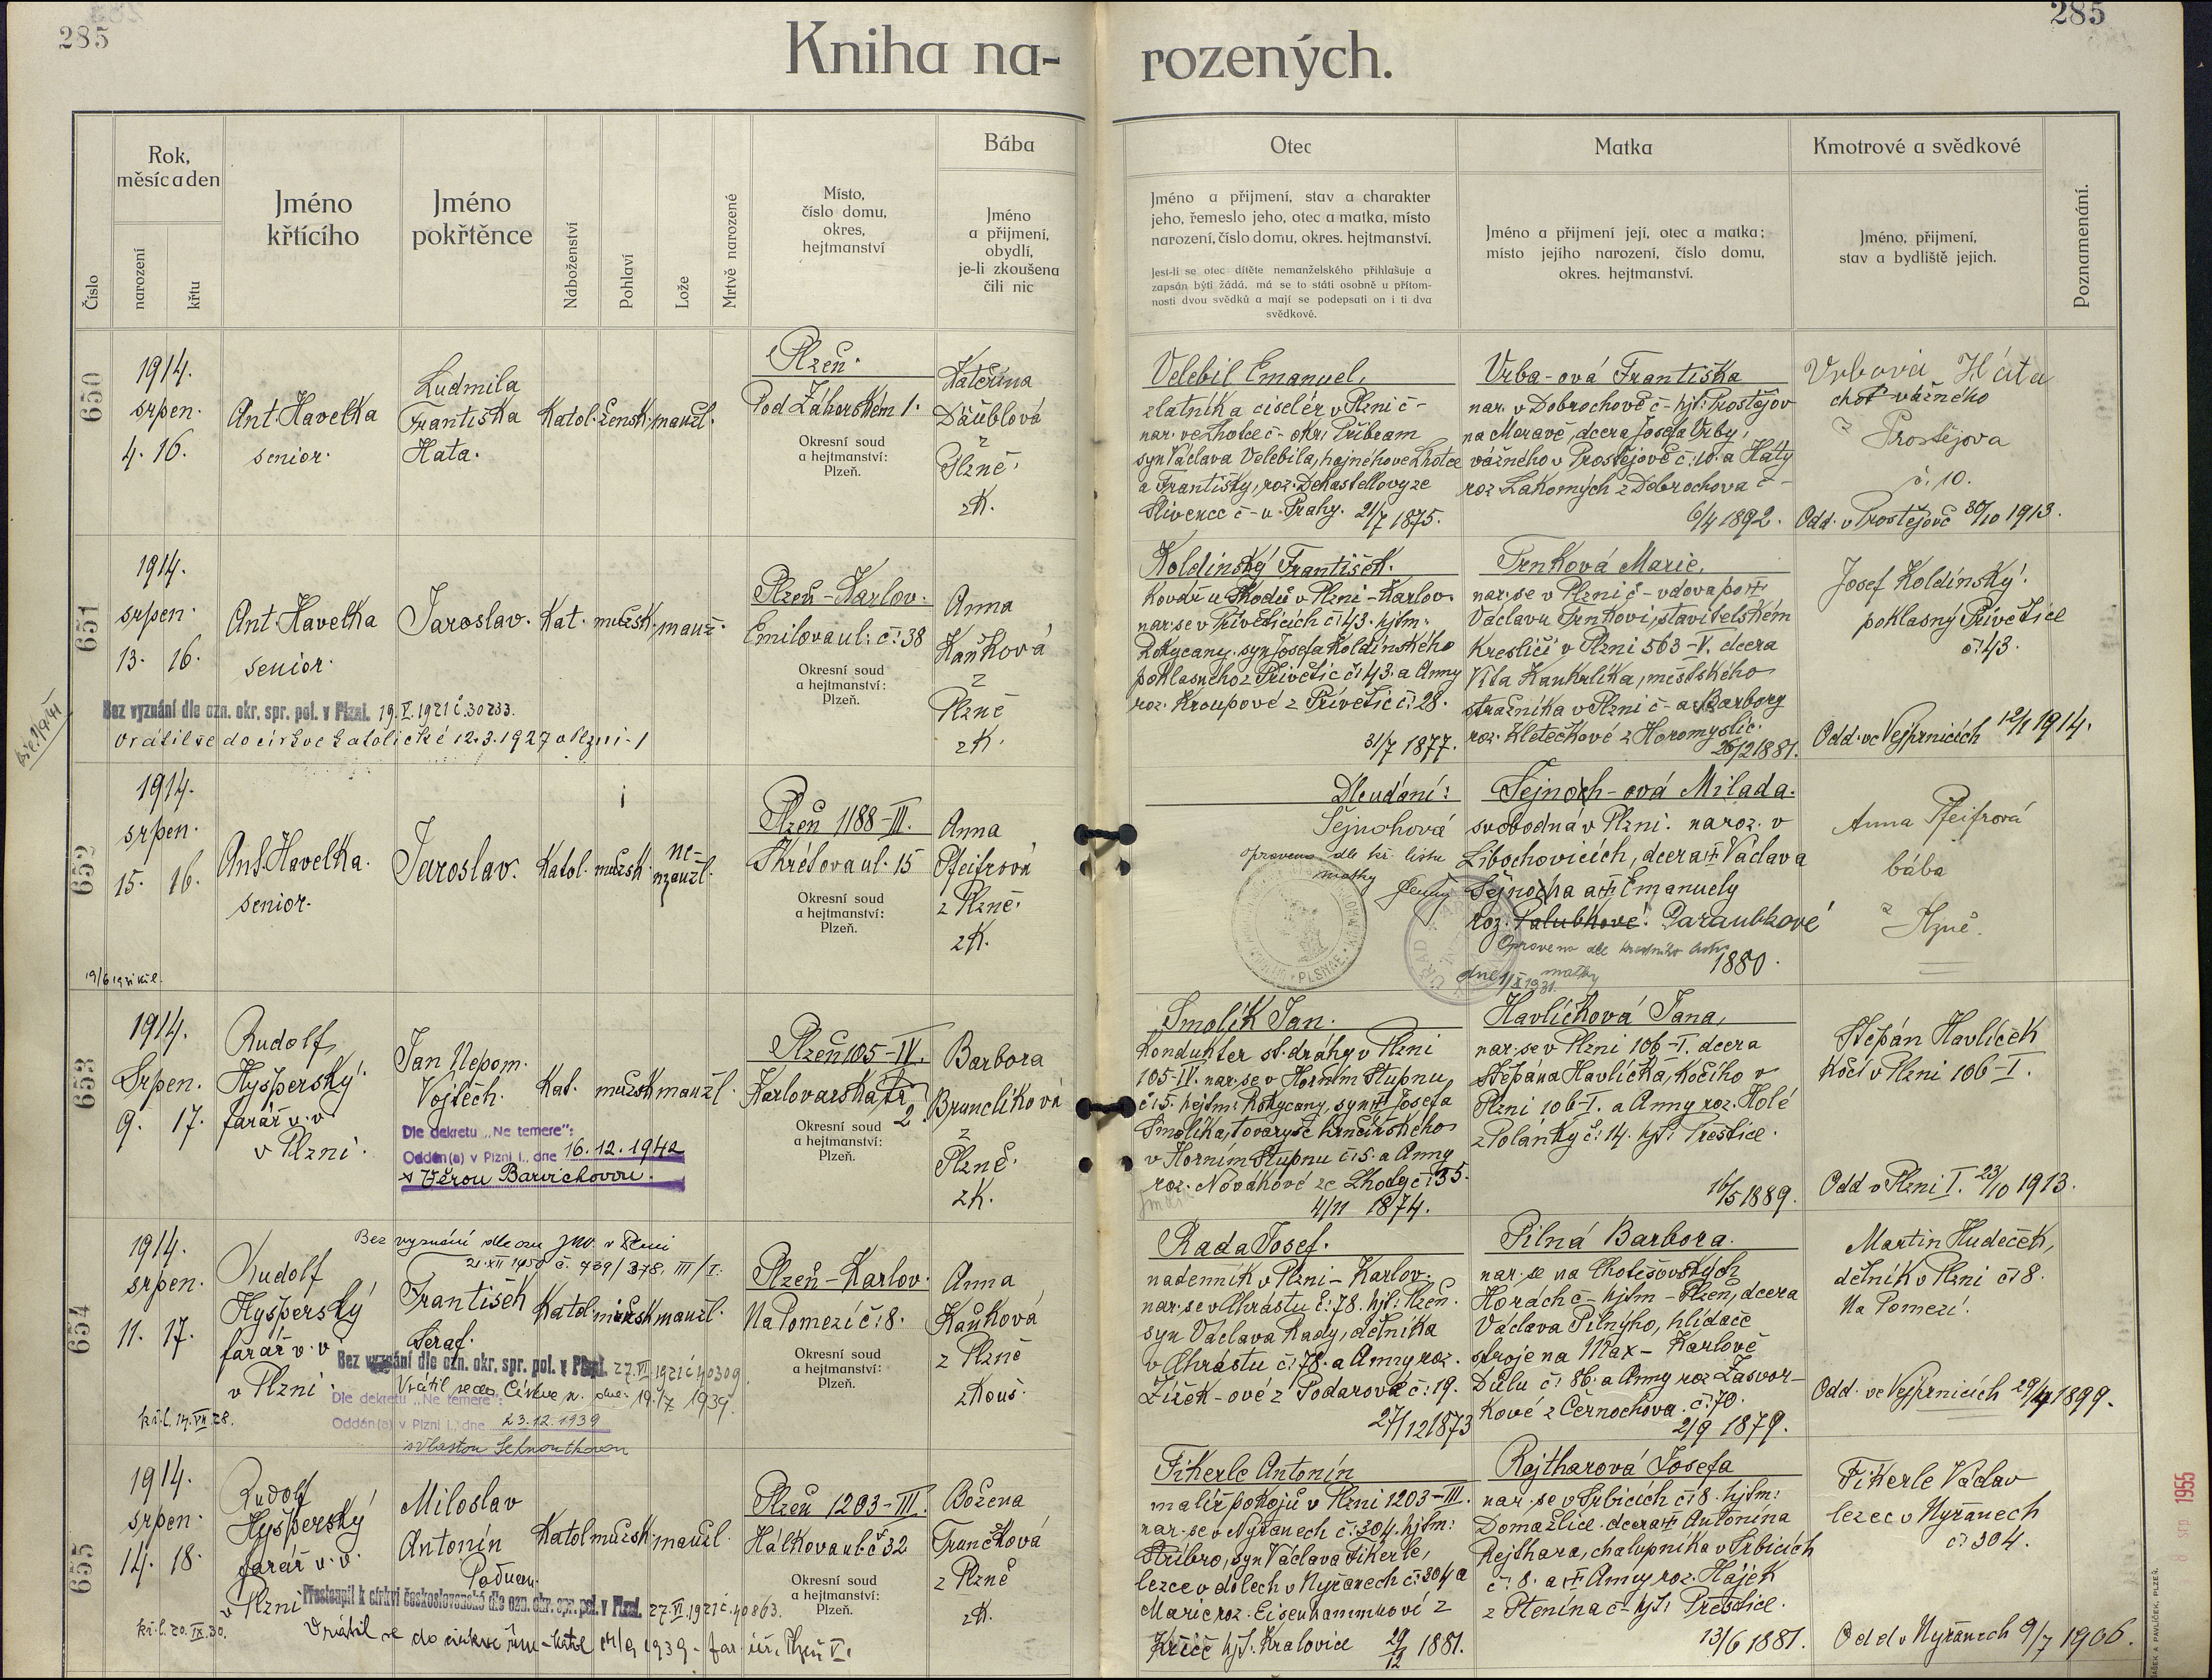 285
285
Kniha na-
rozených.
Číslo
Rok,
měsíc a den
narození
křtu
Jméno
křtícího
Jméno
pokřtěnce
Náboženství
Pohlaví
Lože
Mrtvě narozené
Místo,
číslo domu,
okres,
hejtmanství
Bába
Jméno
a přijmení,
obydlí,
je-li zkoušena
čili nic
Otec
Jméno a přijmení, stav a charakter
jeho, řemeslo jeho, otec a matka, místo
narození, číslo domu, okres. hejtmanství.
Jest-li se otec dítěte nemanželského přihlašuje a
zapsán býti žádá, má se to státi osobně u přítom-
nosti dvou svědků a mají se podepsati on i ti dva
svědkové.
Matka
Jméno a přijmení její, otec a matka;
místo jejího narození, číslo domu,
okres. hejtmanství.
Kmotrové a svědkové
Jméno, přijmení,
stav a bydliště jejich.
Poznamenání.
650
1914.
srpen.
4. 16.
Ant. Havelka
senior.
Ludmila
Františka
Hata.
Katol. žensk. manžl.
Plzeň.
Pod Záhorském 1.
Okresní soud
a hejtmanství:
Plzeň.
Kateřina
Däublová
z
Plzně.
zk.
Velebil Emanuel,
zlatník a ciselér v Plzni č -
nar. ve Lhotce č - okr. Příbram
syn Václava Velebila, hajného ve Lhotce
a Františky, roz. Dekastellovy ze
Slivence č - u Prahy. 21/7 1875.
Vrba-ová Františka
nar. v Dobrochově č - hjt: Prostějov
na Moravě, dcera Josefa Vrby,
vážného v Prostějově č: 10. a Haty
roz. Lakomých z Dobrochova č -
6/4 1892.
Vrbová Háta
choť vážného
z Prostějova
č. 10.
Odd. v Prostějově 30/10 1913.
651
1914.
srpen.
13. 16.
Ant. Havelka
senior.
Jaroslav. Kat. mužsk. manž.
Bez vyznání dle ozn. okr. spr. pol. v Plzni. 19.V.1921 č. 30233.
Vrátil se do církve katolické 12.3.1927 v Plzni-1
Plzeň - Karlov.
Emilova ul: č: 38
Okresní soud
a hejtmanství:
Plzeň.
Anna
Kaňková
z
Plzně
zk.
Koldinský František.
kovář u Škodů v Plzni - Karlov.
nar. se v Přívěticích č: 43. hjtm:
Rokycany. syn Josefa Koldinského
poklasného z Přívětic č: 43. a Anny
roz. Kroupové z Přívětic č: 28.
31/7 1877.
Trnková Marie,
nar. se v Plzni č - vdova po
Václavu Trnkovi, stavitelském
kresliči v Plzni 563-V. dcera
Víta Kaukrlíka, městského
strážníka v Plzni č - a Barbory
roz. Kletečkové z Horomyslic.
26/2 1881.
Josef Koldinský.
poklasný Přívětice
č: 43.
Odd. ve Vejprnicích 12/1 1914.
652
1914.
srpen.
15. 16.
Ant. Havelka.
senior.
Jaroslav. Katol. mužsk. ne-
manžl.
Plzeň 1188-III.
Skrétova ul. 15
Okresní soud
a hejtmanství:
Plzeň.
Anna
Pfeifrová
z Plzně.
zk.
Dle udání:
Šejnohová
opraveno dle kř. listu
matky
Šejnoch-ová Milada.
svobodná v Plzni. naroz. v
Libochovicích, dcera Václava
Šejnocha a Emanuely
roz. Paraubkové
matky
1880.
Anna Pfeifrová
bába
z Plzně.
653
1914.
Srpen.
9. 17.
Rudolf
Hyšperský.
farář v.v.
v Plzni.
Jan Nepom.
Vojtěch. Kat. mužsk. manžl.
Dle dekretu „Ne temere":
Oddán(a) v Plzni I., dne 16.12.1942
s Věrou Barvichovou.
Plzeň 105-IV.
Karlovarská tř.
2.
Okresní soud
a hejtmanství:
Plzeň.
Barbora
Brunclíková
z
Plzně.
zk.
Smolík Jan.
kondukter st. dráhy v Plzni
105-IV. nar. se v Horním Stupnu
č: 15. hejtm: Rokycany, syn Josefa
Smolíka, tovaryše hrnčířského
v Horním Stupnu č: 5. a Anny
roz. Novákové ze Lhoty č: 35.
4/11 1874.
Havlíčková Jana,
nar. se v Plzni 106-I. dcera
Štěpána Havlíčka, kočího v
Plzni 106-I. a Anny roz. Holé
z Polánky č: 14. hjt: Přeštice.
16/5 1889.
Štěpán Havlíček
kočí v Plzni 106-I.
Odd v Plzni I. 23/10 1913.
654
1914.
srpen.
11. 17.
Rudolf
Hyšperský
farář v.v.
v Plzni.
kř.l. 14.VII.28.
František
Seraf.
Katol. mužsk. manžl.
Bez vyznání dle ozn. okr. spr. pol. v Plzni. 27.VI.1921 č 40309.
Dle dekretu „Ne temere":
Oddán(a) v Plzni I., dne 23.12.1939
Plzeň - Karlov.
Na Pomezí č: 8.
Okresní soud
a hejtmanství:
Plzeň.
Anna
Kaňková
z Plzně
zkouš.
Rada Josef.
nadenník v Plzni - Karlov.
nar. se v Chrástu č: 78. hjt: Plzeň.
syn Václava Rady, dělníka
v Chrástu č: 78. a Anny roz.
Žížek-ové z Podarova č: 19.
27/12 1873
Pilná Barbora.
nar. se na Chotěšovských
Horách č - hjtm - Plzeň, dcera
Václava Pilnýho, hlídače
stroje na Max - Karlově
Dolu č: 86. a Anny roz Zasvor-
kové z Černochova. č: 70.
2/9 1879.
Martin Hudeček,
dělník v Plzni č: 8.
Na Pomezí.
Odd. ve Vejprnicích 29/4 1899.
655
1914.
srpen.
14. 18.
Rudolf
Hyšperský
farář v.v.
v Plzni
kř.l. 20.IX.30.
Miloslav
Antonín
Katol mužsk. manžl.
Přestoupil k církvi československé dle ozn. okr. spr. pol. v Plzni. 27.VI.1921 č. 40863.
Plzeň 1203-III.
Hálkova ul. č 32
Okresní soud
a hejtmanství:
Plzeň.
Božena
Trunčkova
z Plzně
zk.
Fikerle Antonín
malíř pokojů v Plzni 1203-III.
nar. se v Nýřanech č: 304. hjtm:
Stříbro, syn Václava Fikerle,
lezce v dolech v Nýřanech č: 304 a
Marie roz. Eisenhammrové z
Křiče hjt. Kralovice 29/12 1881.
Rejtharová Josefa
nar. se v Srbicích č: 8. hjtm:
Domažlice. dcera Antonína
Rejthara, chalupníka v Srbicích
č: 8. a Anny roz. Hájek
z Ptenína č - hjt: Přeštice.
13/6 1881.
Fikerle Václav
lezec v Nýřanech
č: 304.
Odd v Nýřanech 9/7 1906.
1955